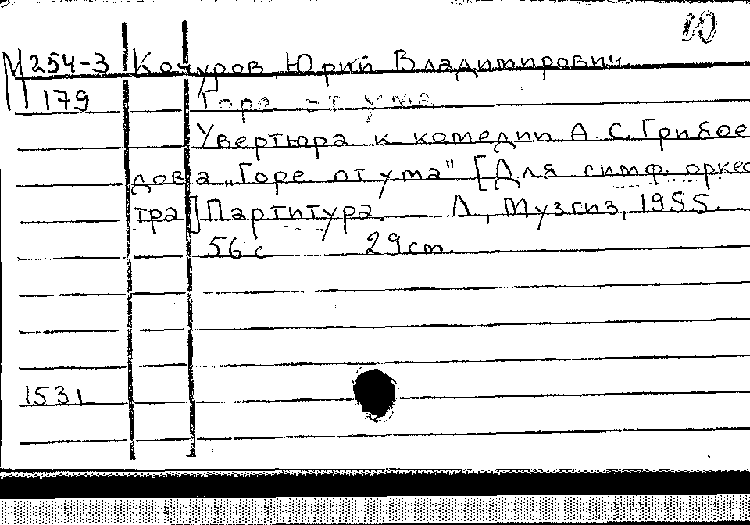 10
М 254-3 Кочуров Юрий Владимирович
179 Горе от ума
Увертюра к комедии А. С. Грибое
дова „Горе от ума" [Для симф. оркес
тра] Партитура. Л., Музгиз, 1955.
56 с 29 cm.
1531